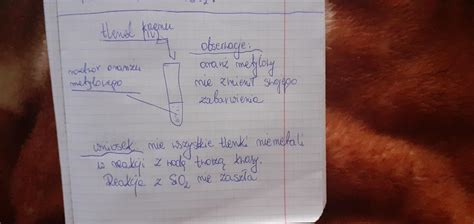 tlenek krzemu
obserwacje:
oranż metylowy
nie zmienił swojego
zabarwienia
roztwór oranżu
metylowego
wniosek nie wszystkie tlenki niemetali
w reakcji z wodą tworzą kwasy.
Reakcja z SO2 nie zaszła